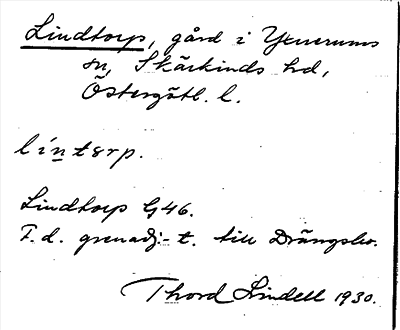 Lindtorp, gård i Yxnerums
sn, Skärkinds hd,
Östergötl. l.
líntərp.
Lindtorp G46.
F. d. grenadj.-t. till Drängsbo.
Thord Lindell 1930.